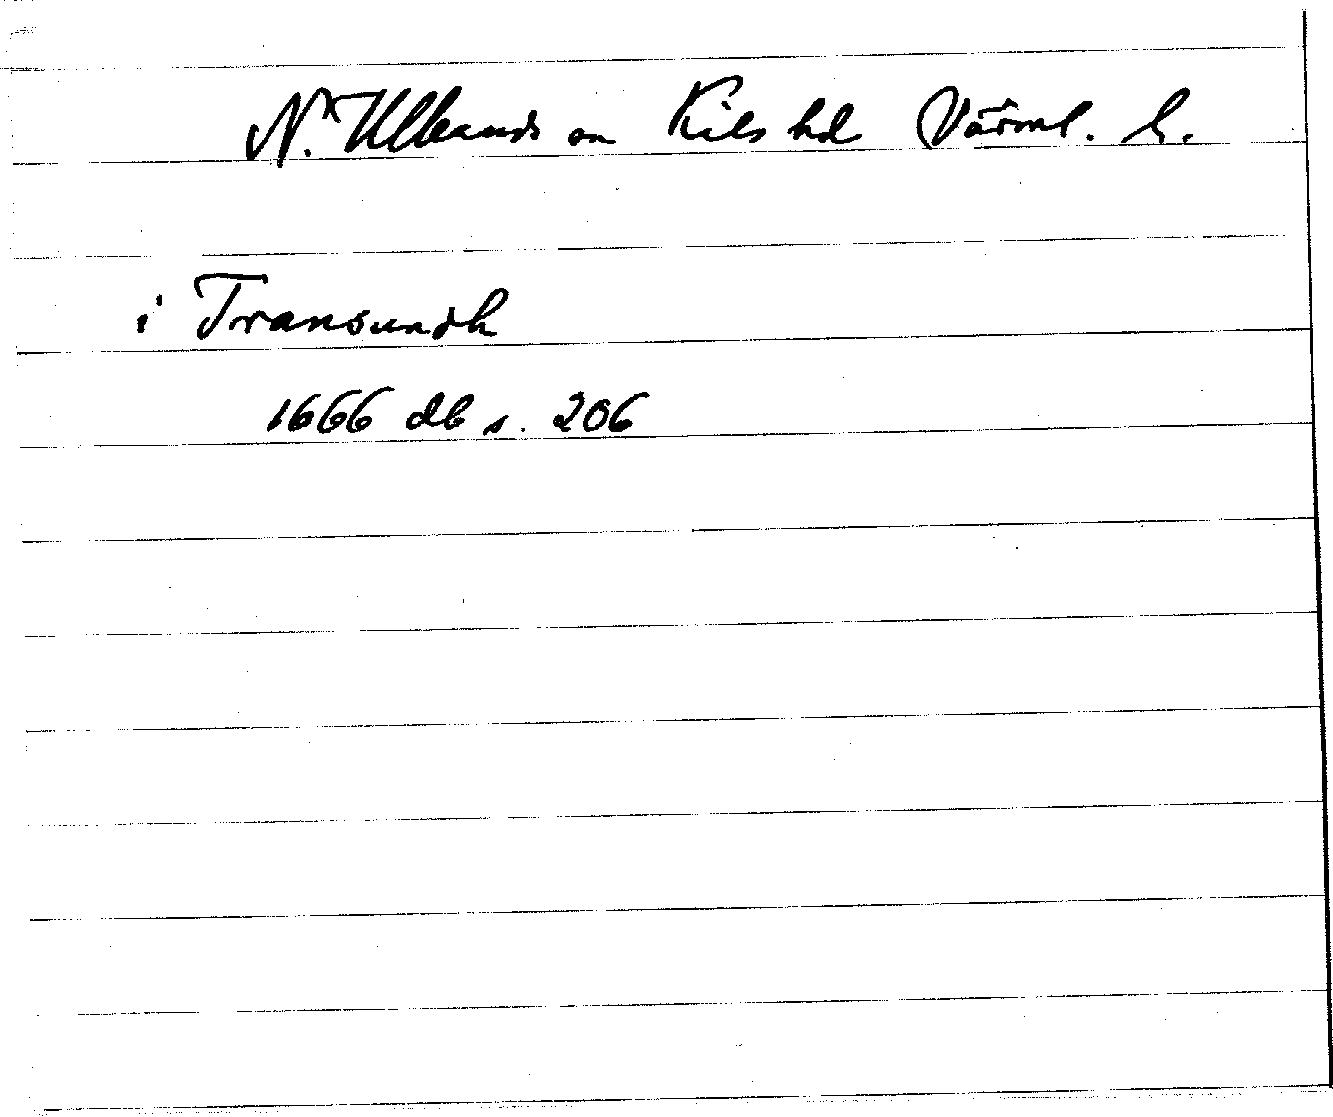 N. Ulleruds sn Kils hd Värml. l.
i Transundh
1666 db s. 206